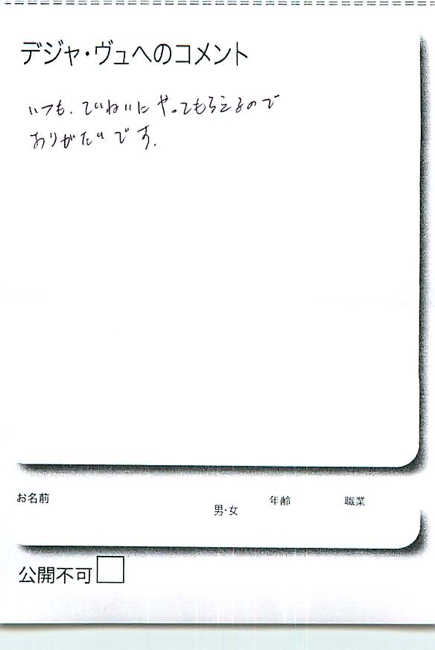 デジャ・ヴュへのコメント
いつも、ていねいにやってもらえるので
ありがたいです。
お名前
男・女
年齢
職業
公開不可